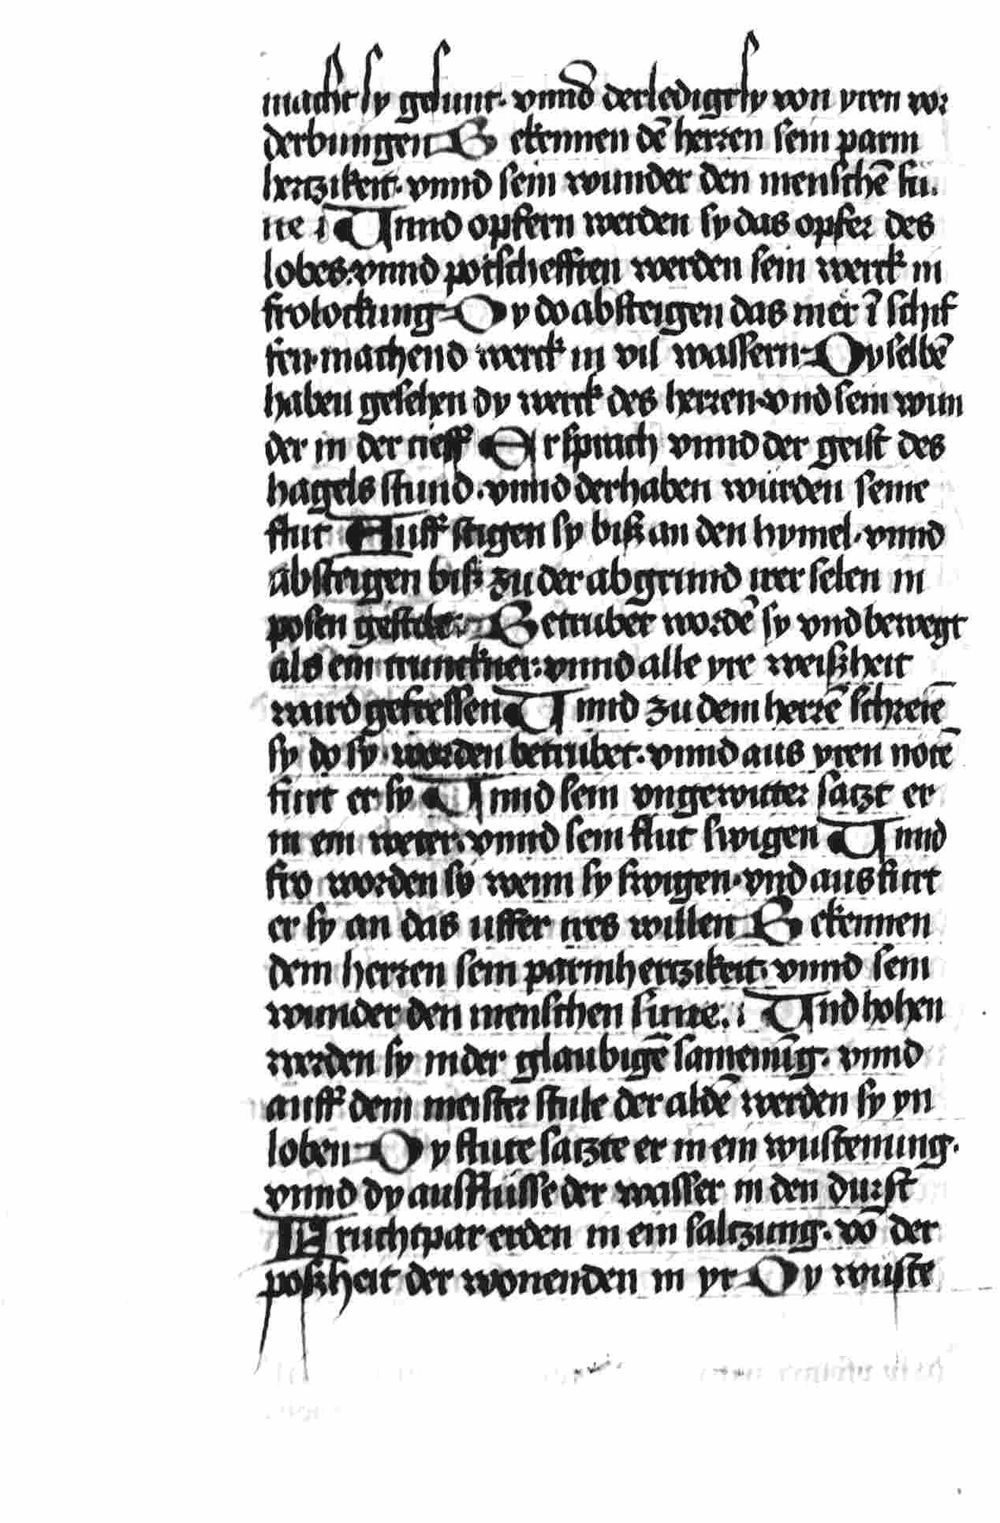 macht sy gesunt. vnnd derledigt sy von yren vor
derbungen Bekennen dē herren sein parm
hertzikeit. vnnd sein wunder den menschē sü.
ne i Unnd opfern werden sy das opfer des
lobes. vnnd potschefften werden sein werck in
frolockung Dy do absteigen das mer ī schif
fen. machend werck in vil wassern Dy selbē
haben gesehen dy werck des herren. vnd sein wun
der in der tieff Er sprach vnnd der geist des
hagels stund. vnnd derhaben würden seine
flut Auff stigen sy biß an den hymel. vnnd
absteigen biß zu der abgrund irer selen in
posen Betrubet wordē sy vnd bewegt
als ein trunckner. vnnd alle yre weißheit
ward gefressen Unnd zu dem herrē schreiē
sy do sy worden betrubet. vnnd aus yren notē
furt er sy Unnd sein vngewitter satzt er
in ein weter. vnnd sein flut swigen Unnd
fro worden sy wenn sy swigen. vnd aus furt
er sy an das uffer ires willen Bekennen
dem herren sein parmhertzikeit. vnnd sein
wunder den menschen sune. i Und hohen
werden sy in der glaubigē samenūg. vnnd
auff dem meister stule der aldē werden sy yn
loben Dy flute satzte er in ein wustenung.
vnnd dy ausflüsse der wasser in den durst
Fruchtpar erden in ein saltzung. vō der
poßheit der wonenden in yr Dy wüste